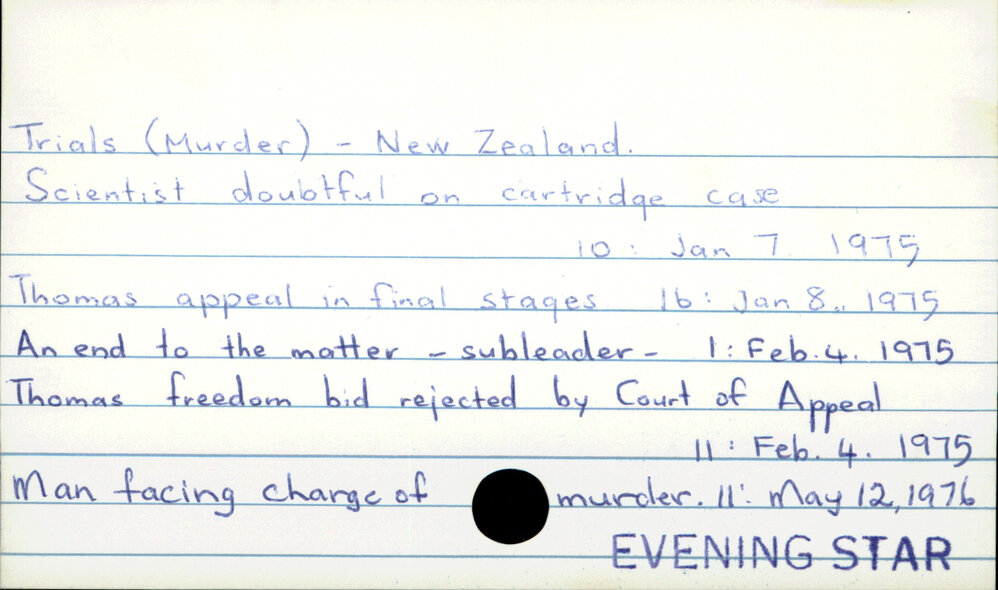 Trials (Murder) - New Zealand.
Scientist doubtful on cartridge case
10: Jan 7. 1975
Thomas appeal in final stages 16: Jan 8.. 1975
An end to the matter - subleader - 1: Feb. 4. 1975
Thomas freedom bid rejected by Court of Appeal
11: Feb. 4. 1975
Man facing charge of murder. 11: May 12, 1976
EVENING STAR